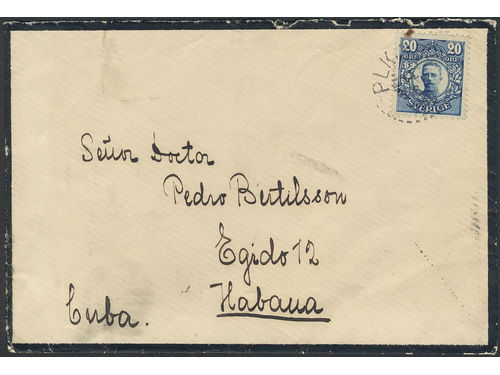 20 20
ÖRE ÖRE
SVERIGE
PLK
Señor Doctor
Pedro Bertilsson
Egido 12
Habana
Cuba.